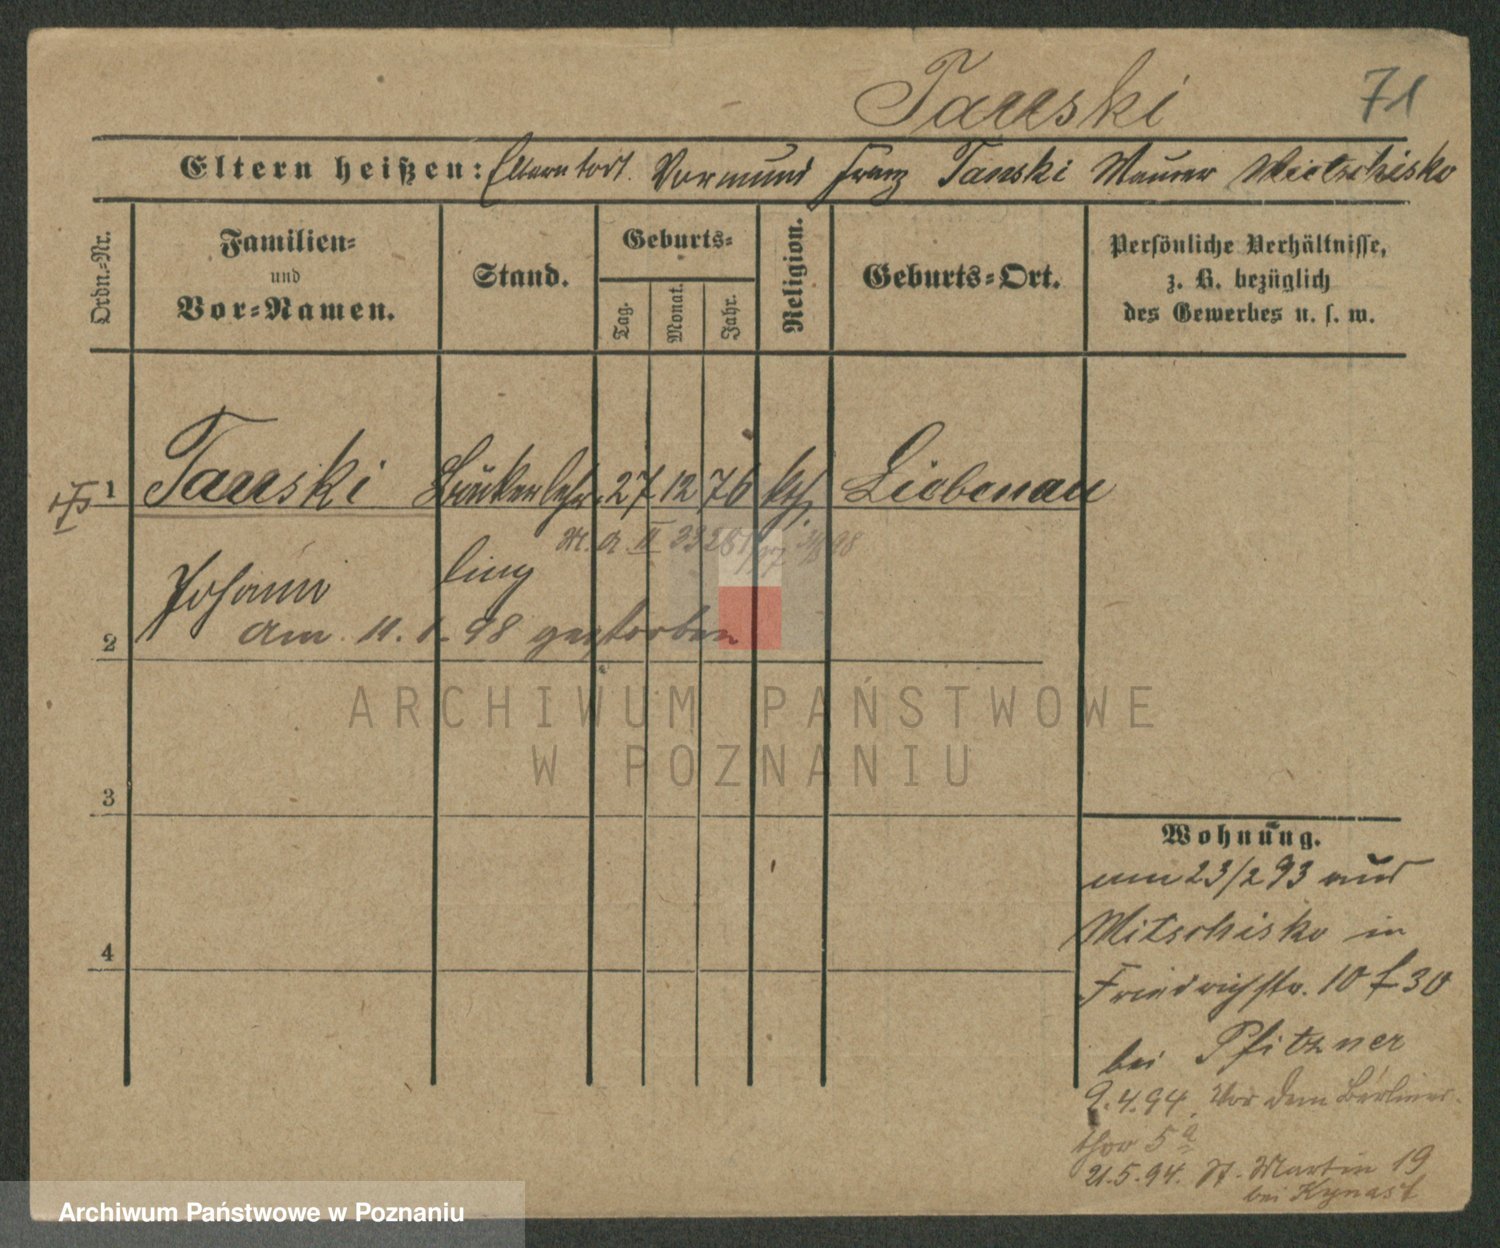 Tanski 71
Eltern heißen: Eltern todt. Vormund Franz Tanski Maurer Mietschisko
Ordn.-Nr.
Familien-
und
Vor-Namen.
Stand.
Geburts-
Tag.
Monat.
Jahr.
Religion.
Geburts-Ort.
Persönliche Verhältnisse,
z. B. bezüglich
des Gewerbes u. s. w.
1 Tanski Bäckerlehr 27 12 76 kth. Liebenau
Johann ling
2 am 11. 1. 98 gestorben
3
4
Wohnung.
am 23/2 93 aus
Mitschisko in
Friedrichstr. 10 f 30
bei Pfitzner
9.4.94. Vor dem Berliner-
thor 5a
21.5.94. St. Martin 19
bei Kynast
ARCHIWUM PAŃSTWOWE
W POZNANIU
Archiwum Państwowe w Poznaniu